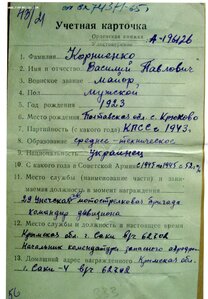 Учетная карточка
Орденская книжка А-196126
Удостоверение
1. Фамилия Корниенко
2. Имя и отчество Василий Павлович
3. Воинское звание майор
4. Пол мужской
5. Год рождения 1923
6. Место рождения Полтавская обл. с. Крюково
7. Партийность (с какого года) КПСС с 1943.
8. Образование средне-техническое
9. Национальность украинец
10. С какого года в Советской Армии
11. Место службы (наименование части) и занимаемая должность в момент награждения
29 Унечская мотострелковая бригада
командир дивизиона
12. Место службы и должность в настоящее время
Крымская обл. г. Саки в/ч
Начальник комендатуры
13. Домашний адрес награжденного Крымская обл.
г. Саки-4 в/ч